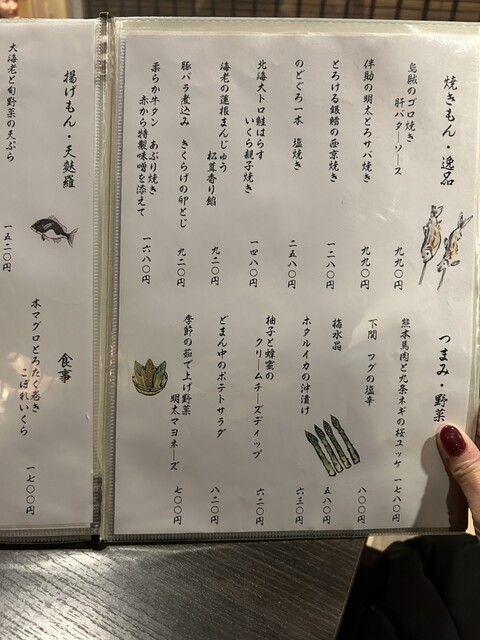 焼きもん・逸品
烏賊のゴロ焼き
肝バターソース
九九〇円
伴助の明太とろサバ焼き
九九〇円
とろける銀鱈の西京焼き
一二八〇円
のどぐろ一本 塩焼き
二五八〇円
北海大トロ鮭はらす
いくら親子焼き
一四八〇円
海老の蓮根まんじゅう
松茸香り餡
九二〇円
豚バラ煮込み きくらげの卵とじ
九二〇円
柔らか牛タン あぶり焼き
赤から特製味噌を添えて
一六八〇円
つまみ・野菜
熊本馬肉と九条ネギの桜ユッケ
一七八〇円
下関 フグの塩辛
八〇〇円
梅水晶
五八〇円
ホタルイカの沖漬け
六三〇円
柚子と蜂蜜の
クリームチーズディップ
六二〇円
どまん中のポテトサラダ
八二〇円
季節の茹で上げ野菜
明太マヨネーズ
七〇〇円
揚げもん・天麩羅
大海老と旬野菜の天ぷら
一五二〇円
食事
本マグロとろたく巻き
こぼれいくら
一七〇〇円